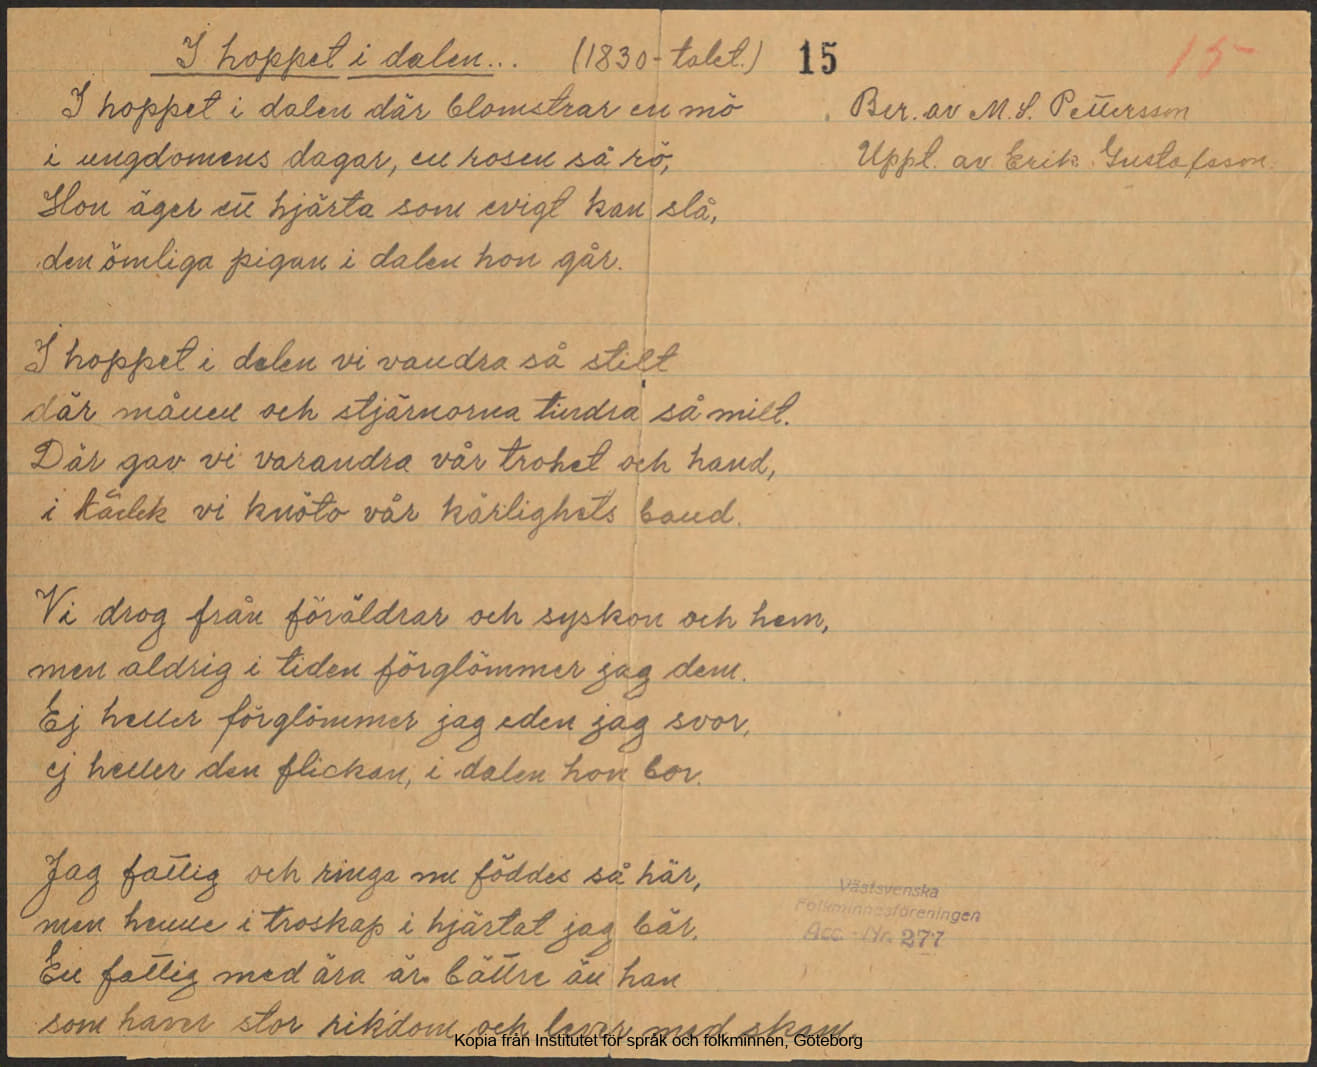 I hoppet i dalen... (1830-talet.) 15 15
I hoppet i dalen där blomstrar en mö
i ungdomens dagar, en rosen så rö,
Hon äger ett hjärta som evigt kan slå,
den ömliga pigan i dalen hon går.
Ber. av M. S. Pettersson
Uppt. av Erik Gustafsson.
I hoppet i dalen vi vandra så stilt
där månen och stjärnorna tindra så milt.
Där gav vi varandra vår trohet och hand,
i kärlek vi knöto vår kärlighets band.
Vi drog från föräldrar och syskon och hem,
men aldrig i tiden förglömmer jag dem.
Ej heller förglömmer jag eden jag svor,
ej heller den flickan, i dalen hon bor.
Jag fattig och ringa nu föddes så här,
men henne i troskap i hjärtat jag bär.
En fattig med ära är bättre än han
som haver stor rikdom och lever med skam.
Västsvenska
Folkminnesföreningen
Acc.-Nr. 277
Kopia från Institutet för språk och folkminnen, Göteborg